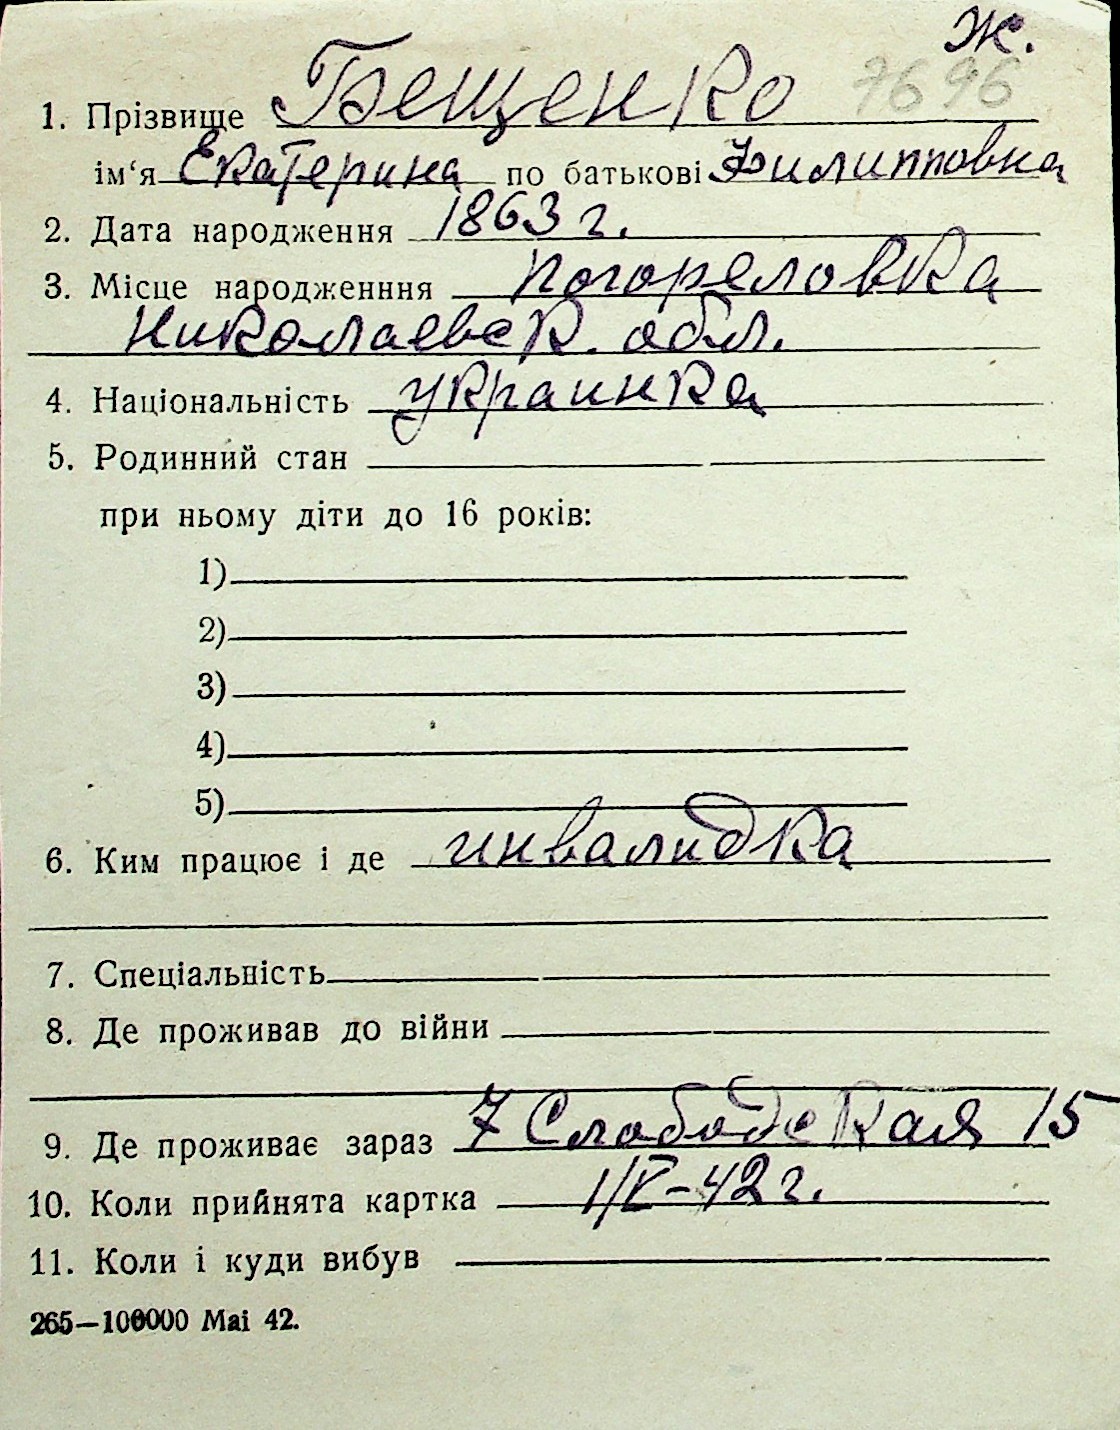 Ж.
7696
1. Прізвище Бещенко
ім‘я Екатерина по батькові Филипповна
2. Дата народження 1863 г.
3. Місце народженння Погореловка
Николаевск. обл.
4. Національність украинка
5. Родинний стан
при ньому діти до 16 років:
1)
2)
3)
4)
5)
6. Ким працює і де инвалидка
7. Спеціальність
8. Де проживав до війни
9. Де проживає зараз 7 Слободская 15
10. Коли прийнята картка 1/V-42 г.
11. Коли і куди вибув
265—100000 Mai 42.